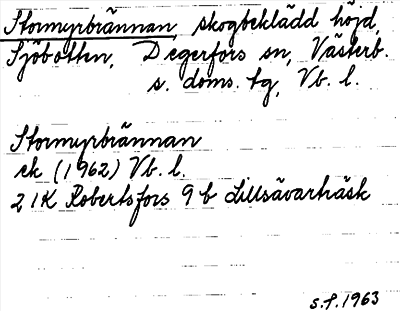 Stormyrbrännan, skogbeklädd höjd,
Sjöbotten, Degerfors sn, Västerb.
s. doms. tg, Vb. l.
Stormyrbrännan
ek (1962) Vb. l.
21K Robertsfors 9b Lillsävarträsk
s.f. 1963